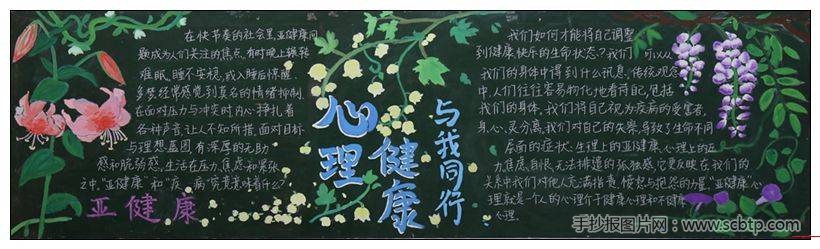 在快节奏的社会里,亚健康问
题成为人们关注的焦点,有时晚上辗转
难眠、睡不安稳,或入睡后惊醒、
多梦;经常感觉到莫名的情绪抑制,
在面对压力与冲突时,内心挣扎着
各种声音,让人不知所措,面对目标
与理想蓝图有深厚的无助
感和脆弱感,生活在压力、焦虑和紧张
之中,"亚健康"和"疾病"究竟意味着什么?
亚健康
心理
健康
与我同行
我们如何才能将自己调整
到健康、快乐的生命状态?我们可以从
我们的身体中得到什么讯息,传统观念
中,人们往往容易物化地看待自己,包括
我们的身体,我们将自己视为疾病的受害者,
身、心、灵分离,我们对自己的失察,导致了生命不同
层面的症状:生理上的亚健康、心理上的压
力、焦虑、自恨、无法排遣的孤独感,它更反映在我们的
关系中,我们对他人充满指责、愤怒与抱怨的力量,"亚健康"心
理就是一个人的心理介于健康心理和不健康
心理。
手抄报图片网
www.scbtp.com